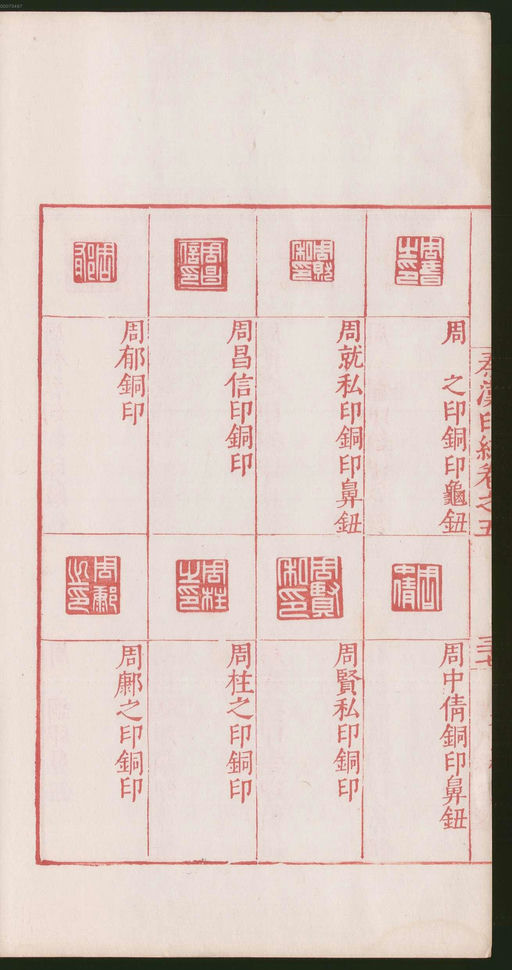 00073487
秦漢印統卷之五
周　之印銅印龜鈕
周就私印銅印鼻鈕
周昌信印銅印
周郁銅印
周中倩銅印鼻鈕
周賢私印銅印
周柱之印銅印
周鄺之印銅印